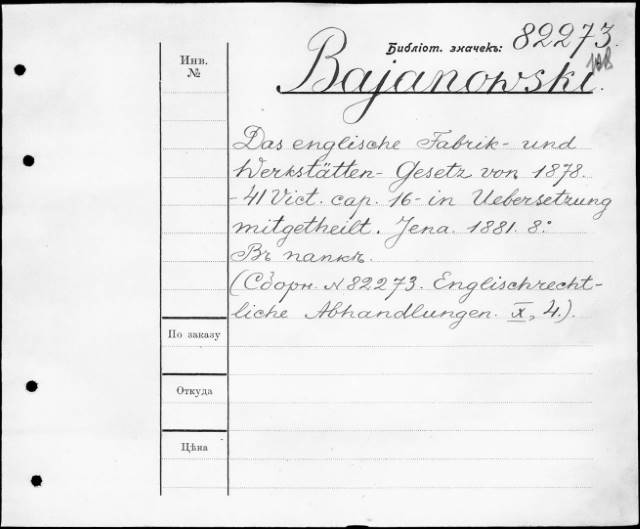 Инв. №
Библіот. значекъ: 82273.
108
Bajanowski.
Das englische Fabrik- und
Werkstätten- Gesetz von 1878.
- 41 Vict. cap. 16 - in Uebersetzung
mitgetheilt. Jena. 1881. 8º
Въ папкѣ.
(Сборн. N 82273. Englischrecht-
liche Abhandlungen. X, 4.).
По заказу
Откуда
Цѣна